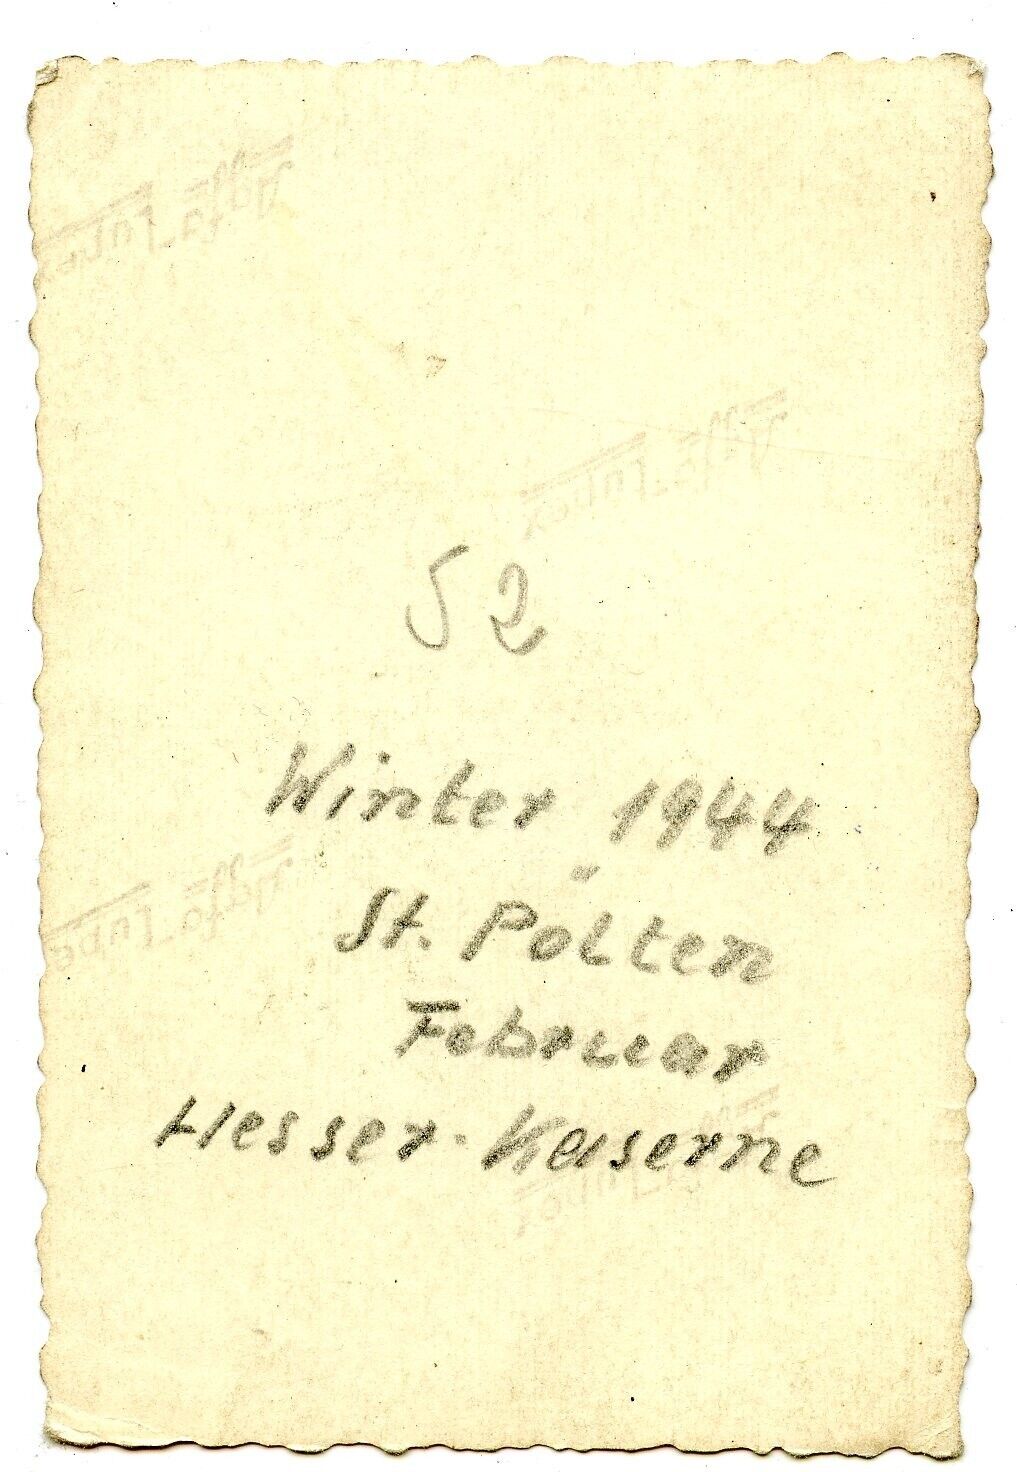 52
Winter 1944
St. Pölten
Februar
Hesser-Kaserne